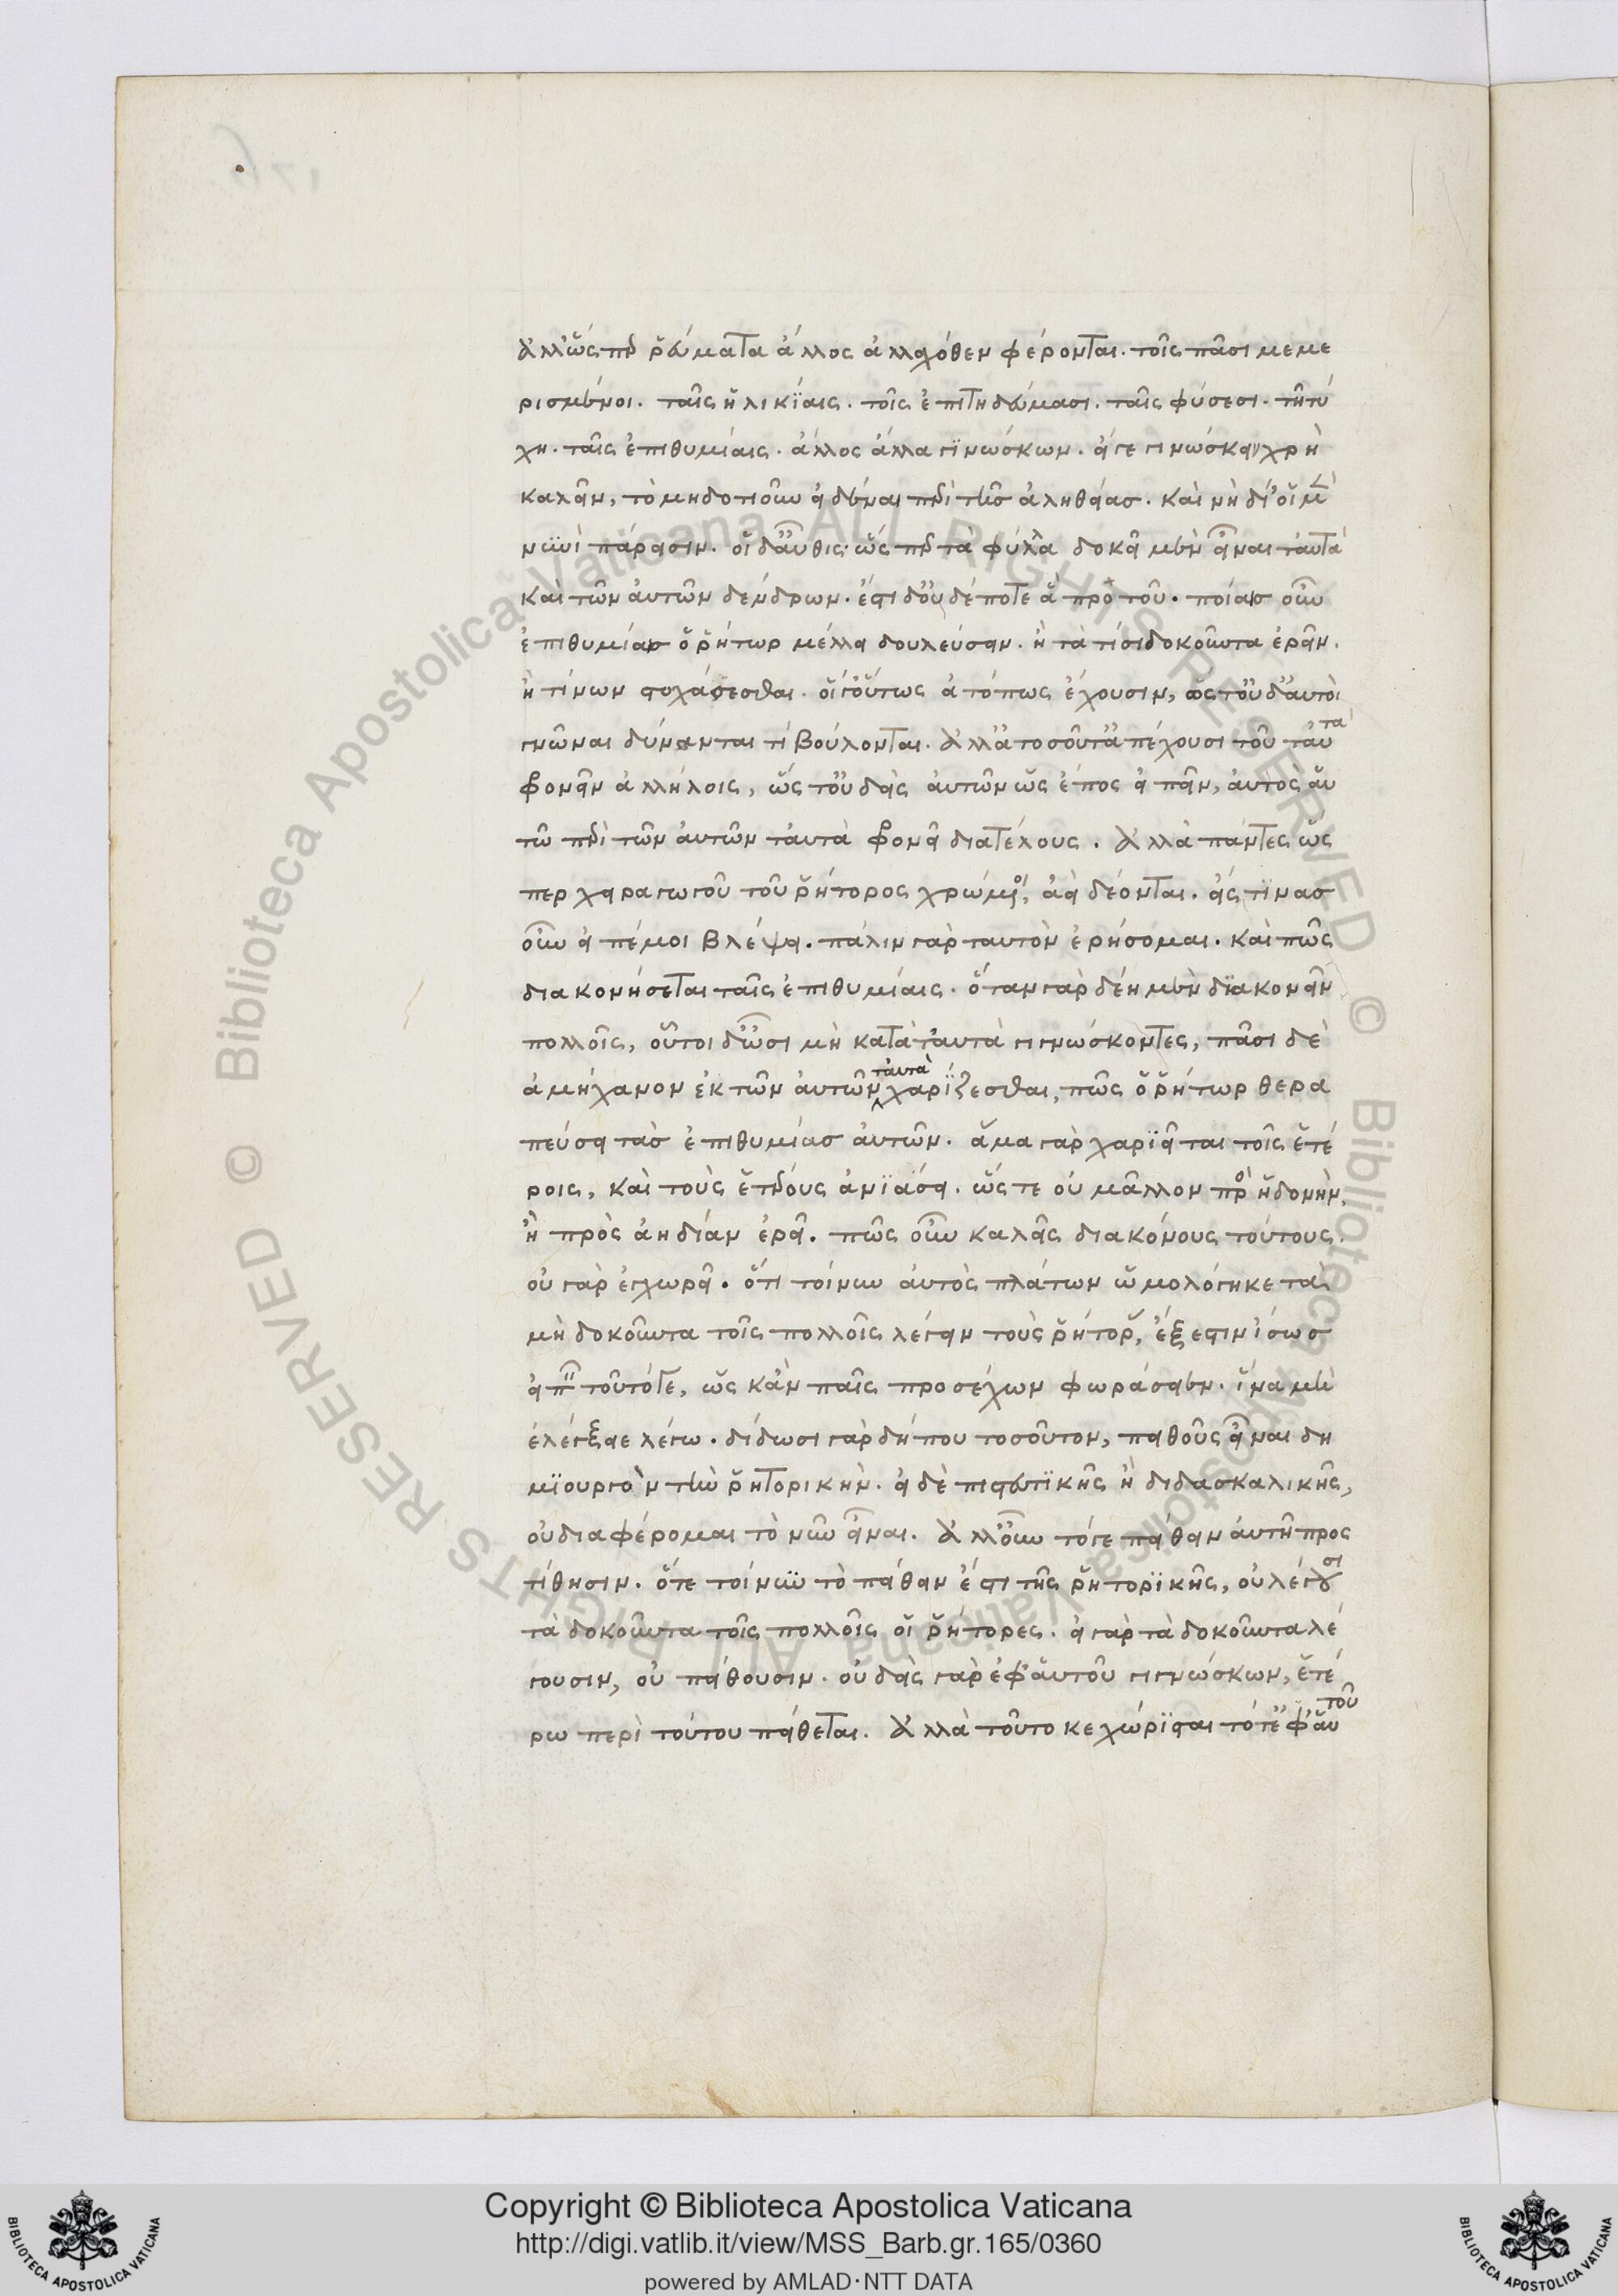 ἀλλ' ὥσπερ ῥεύματα ἄλλος ἀλλαχόθεν φέρονται. τοῖς πᾶσι μεμε
ρισμένοι. ταῖς ἡλικίαις. τοῖς ἐπιτηδεύμασι. ταῖς φύσεσι. τῆ τύ
χη. ταῖς ἐπιθυμίαις. ἄλλος ἄλλα γινώσκων. εἴγε γινώσκειν χρὴ
καλεῖν, τὸ μηδοτιοῦν εἰδέναι περὶ τῆς ἀληθείας. καὶ μὴ δί' οἱ μὲν
νυνὶ πάρεισιν. οἱ δ' αὖθις· ὥσπερ τὰ φύλλα δοκεῖ μὲν εἶναι ταυτὰ
καὶ τῶν αὐτῶν δένδρων. ἔστι δ' οὐδέποτε ἃ πρὸ τοῦ. ποίαις οὖν
ἐπιθυμίαις ὁ ῥήτωρ μέλλει δουλεύσειν. ἢ τὰ τίσι δοκοῦντα ἐρεῖν.
ἢ τίνων στοχάσεσθαι. οἵγ' οὕτως ἀτόπως ἔχουσιν, ὥστ' οὐδ' αὐτοὶ
γνῶναι δύνανται τί βούλονται. ἀλλὰ τοσοῦτ' ἀπέχουσι τοῦ ταὐτὰ
φρονεῖν ἀλλήλοις, ὥστ' οὐδεὶς αὐτῶν ὡς ἔπος εἰπεῖν, αὐτὸς αὑ
τῶ περὶ τῶν αὐτῶν ταὐτὰ φρονεῖ διατέλους. ἀλλὰ πάντες ὥς
περ χειραγωγοῦ τοῦ ῥήτορος χρώμενοι, ἀεὶ δέονται. εἰς τίνας
οὖν εἰπέ μοι βλέψει. πάλιν γὰρ ταυτὸν ἐρήσομαι. καὶ πῶς
διακονήσεται ταῖς ἐπιθυμίαις. ὅταν γὰρ δέη μὲν διακονεῖν
πολλοῖς, οὗτοι δ' ὦσι μὴ κατὰ ταυτὰ γιγνώσκοντες, πᾶσι δὲ
ἀμήχανον ἐκ τῶν αὐτῶν ταὐτὰ χαρίζεσθαι, πῶς ὁ ῥήτωρ θερα
πεύσει τὰς ἐπιθυμίας αὐτῶν. ἅμα γὰρ χαριεῖται τοῖς ἑτέ
ροις, καὶ τοὺς ἑτέρους ἀνιάσει. ὥστε οὐ μᾶλλον πρὸς ἡδονὴν,
ἢ πρὸς ἀηδίαν ἐρεῖ. πῶς οὖν καλεῖς διακόνους τούτους.
οὐ γὰρ ἐγχωρεῖ. ὅτι τοίνυν αὐτὸς πλάτων ὡμολόγηκε τὰ
μὴ δοκοῦντα τοῖς πολλοῖς λέγειν τοὺς ῥήτορας, ἔξεστιν ἴσως
εἰπεῖν τοῦτό γε, ὡς κἂν παῖς προσέχων φωράσειεν. ἵνα μὴ
ἐλέγξαι λέγω. δίδωσι γὰρ δήπου τοσοῦτον, πειθοῦς εἶναι δη
μιουργὸν τὴν ῥητορικήν. εἰ δὲ πιστευτικῆς ἢ διδασκαλικῆς,
οὐ διαφέρομαι τὸ νῦν εἶναι. ἀλλ' οὖν τόγε πείθειν αὐτῆ προς
τίθησιν. ὅτε τοίνυν τὸ πείθειν ἐστὶ τῆς ῥητορικῆς, οὐ λέγουσι
τὰ δοκοῦντα τοῖς πολλοῖς οἱ ῥήτορες. εἰ γὰρ τὰ δοκοῦντα λέ
γουσιν, οὐ πείθουσιν. οὐδεὶς γὰρ ἐφ' αὑτοῦ γιγνώσκων, ἑτέ
ρω περὶ τούτου πείθεται. ἀλλὰ τοῦτο κεχώρισται τό τ' ἐφ' αὑτοῦ
Copyright © Biblioteca Apostolica Vaticana
http://digi.vatlib.it/view/MSS_Barb.gr.165/0360
powered by AMLAD·NTT DATA